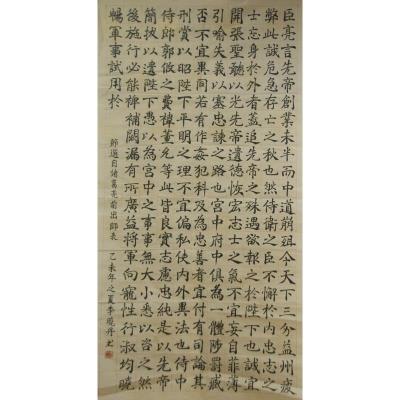 臣亮言先帝創業未半而中道崩殂今天下三分益州疲
弊此誠危急存亡之秋也然侍衛之臣不懈於內忠志之
士忘身於外者蓋追先帝之殊遇欲報之於陛下也誠宜
開張聖聽以光先帝遺德恢宏志士之氣不宜妄自菲薄
引喻失義以塞忠諫之路也宮中府中俱為一體陟罰臧
否不宜異同若有作姦犯科及為忠善者宜付有司論其
刑賞以昭陛下平明之理不宜偏私使內外異法也侍中
侍郎郭攸之費禕董允等此皆良實志慮忠純是以先帝
簡拔以遺陛下愚以為宮中之事事無大小悉以咨之然
後施行必能裨補闕漏有所廣益將軍向寵性行叔均曉
暢軍事試用於
節選自諸葛亮前出師表 乙未年之夏李丹書